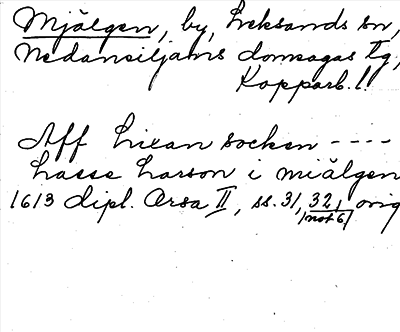 Mjälgen, by, Leksands sn,
Nedansiljans domsagas tg,
Kopparb. l.
Aff Lixan socken ----
Lasse Larson i miälgen
1613 dipl. Orsa II, ss. 31, 32, orig
(not 6)